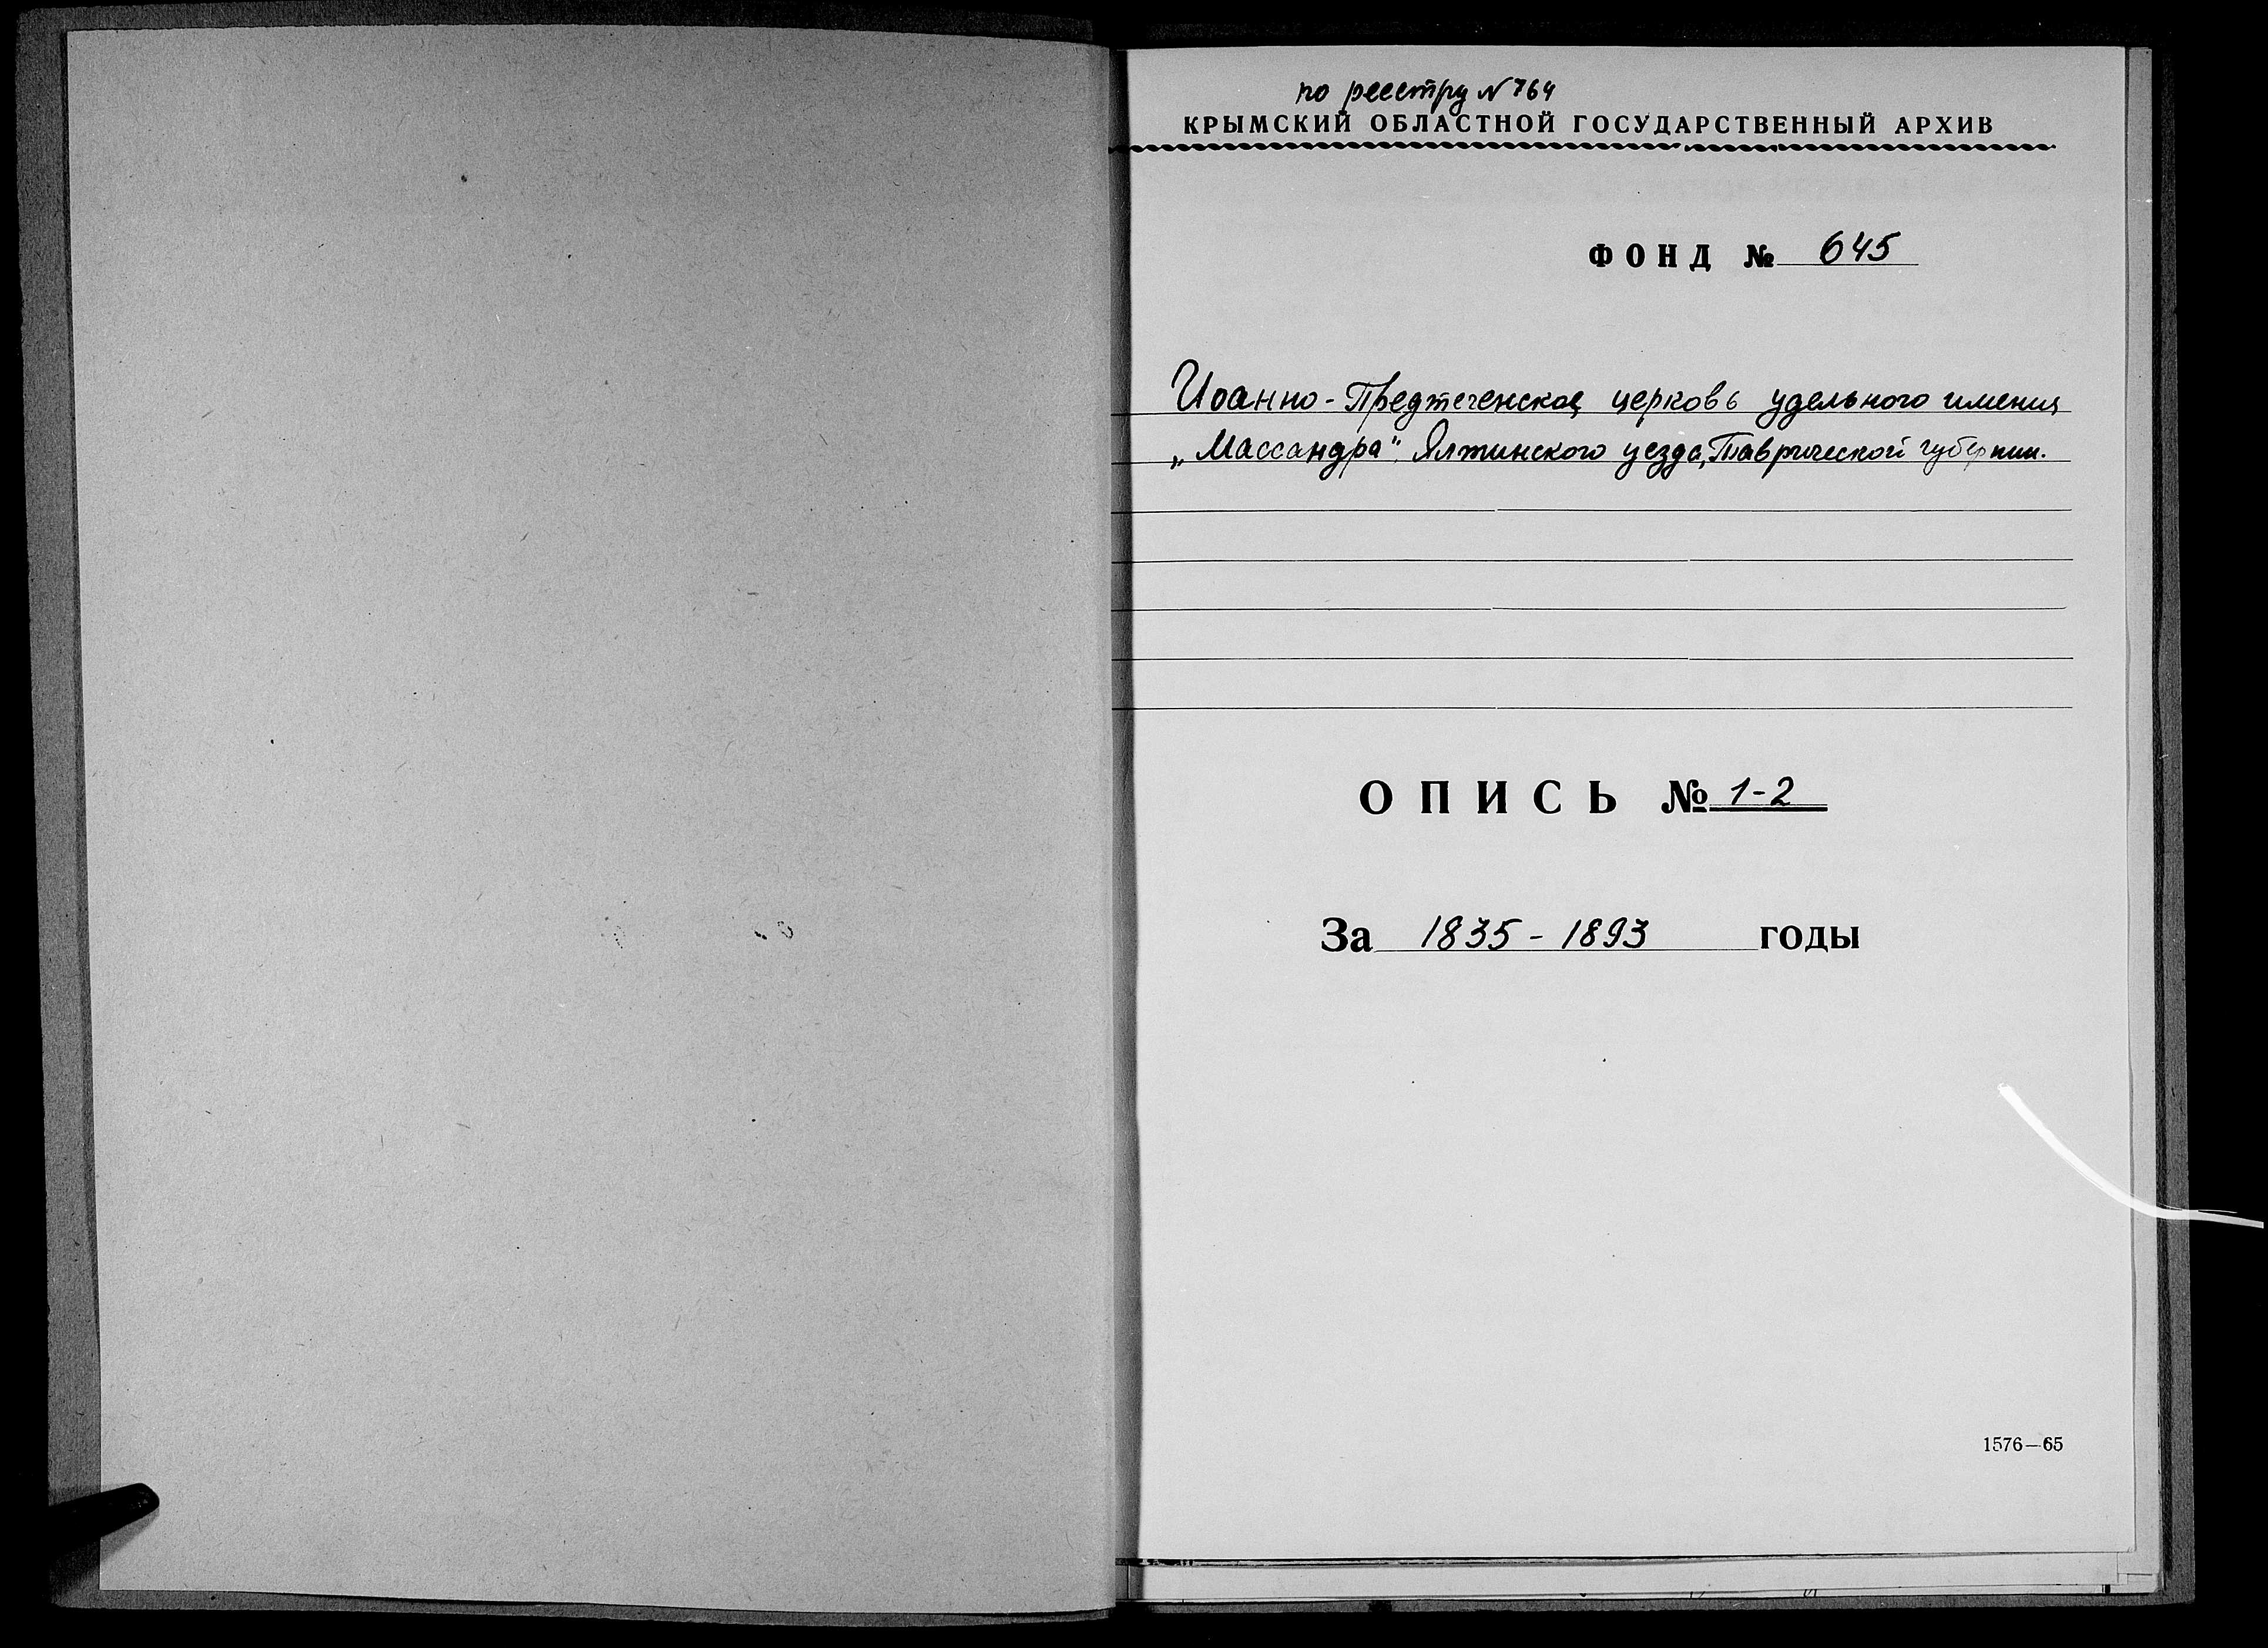 по реестру N 764
КРЫМСКИЙ ОБЛАСТНОЙ ГОСУДАРСТВЕННЫЙ АРХИВ
ФОНД № 645
Иоанно-Предтеченская церковь удельного имения
„Массандра" Ялтинского уезда, Таврической губернии.
ОПИСЬ № 1-2
За 1835 - 1893 годы
1576—65